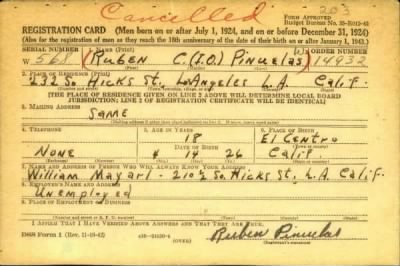 Cancelled
203
FORM APPROVED
Budget Bureau No. 33-R012-42
REGISTRATION CARD (Men born on or after July 1, 1924, and on or before December 31, 1924)
(Also for the registration of men as they reach the 18th anniversary of the date of their birth on or after January 1, 1943.)
SERIAL NUMBER 1. NAME (Print) ORDER NUMBER
W 568 (RUBEN C.(I.O.) PINUELAS) 14932
2. PLACE OF RESIDENCE (Print)
232 So. Hicks St, Los Angeles L.A. Calif.
[THE PLACE OF RESIDENCE GIVEN ON LINE 2 ABOVE WILL DETERMINE LOCAL BOARD
JURISDICTION; LINE 2 OF REGISTRATION CERTIFICATE WILL BE IDENTICAL]
3. MAILING ADDRESS
SAME
4. TELEPHONE
18
El Centro
NONE 14 26 Calif
DATE OF BIRTH
7. NAME AND ADDRESS OF PERSON WHO WILL ALWAYS KNOW YOUR ADDRESS
William Mayarl - 210 1/2 So. Hicks St. L.A. Calif.
8. EMPLOYER'S NAME AND ADDRESS
Unemployed
9. PLACE OF EMPLOYMENT OR BUSINESS
I AFFIRM THAT I HAVE VERIFIED ABOVE ANSWERS AND THAT THEY ARE TRUE.
DSS Form 1 (Rev. 11-16-42) (OVER) Ruben Pinuelas